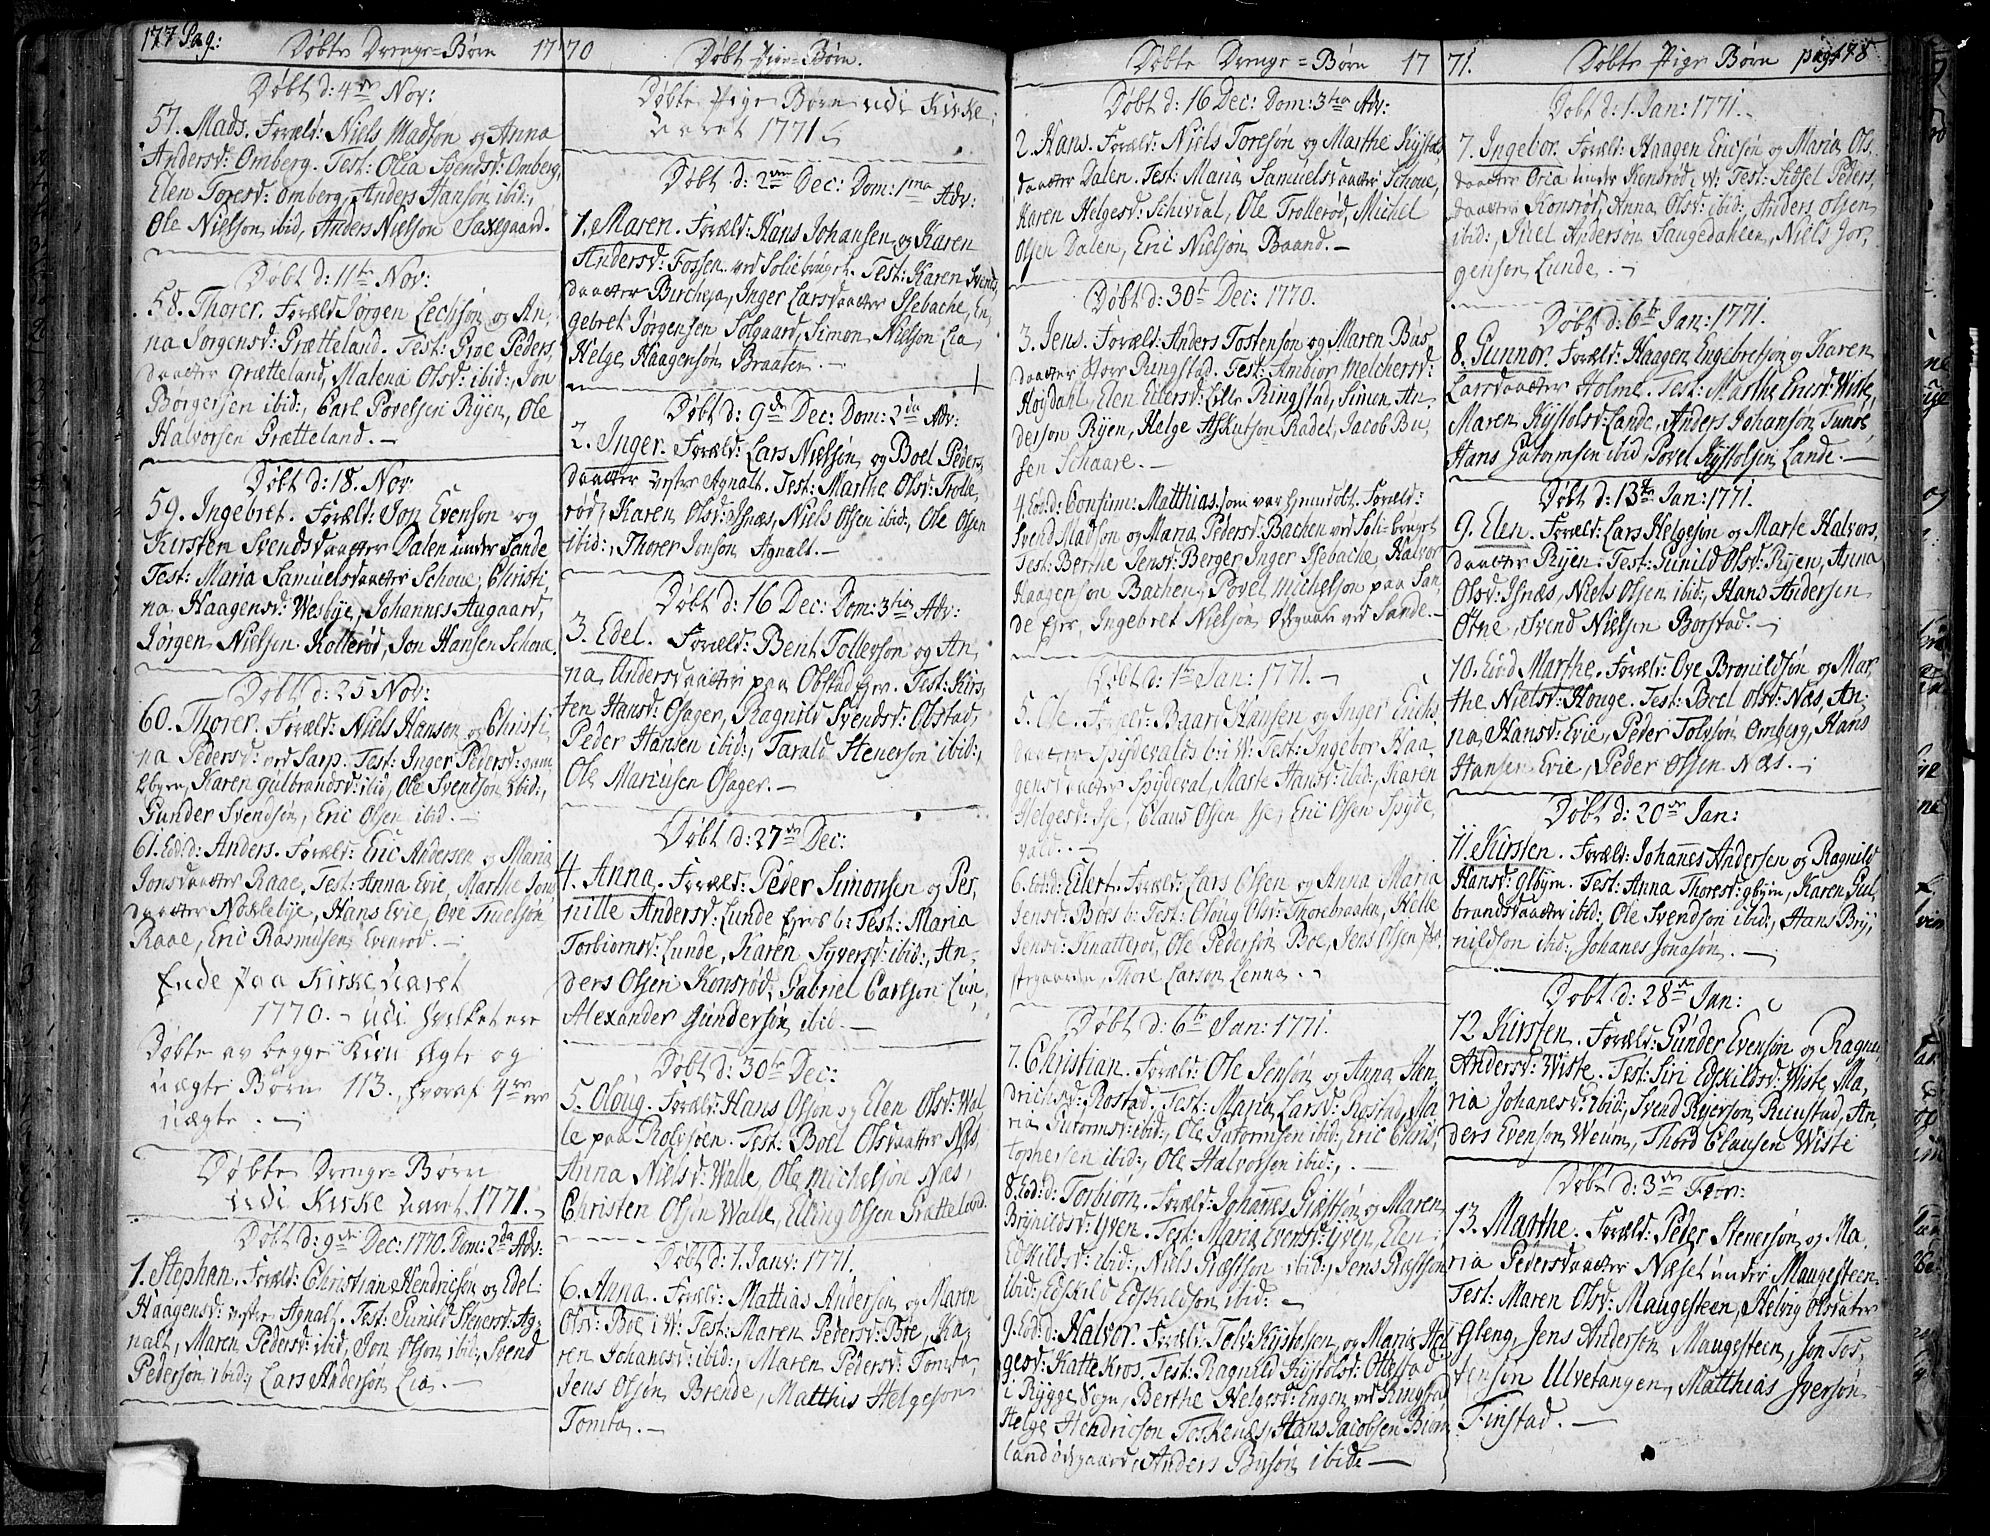 177 Pag:
Døbte Drenge=Børn 17
Døbt d: 4de Nov:
57. Mads. Foræld: Niels Madsøn og Anna
Andersd: Omberg. Test: Olia Svendsd: Omberg,
Elen Toresd: Omberg, Anders Hansøn ibid:,
Ole Nielsøn ibid, Anders Nielsøn Saxegaard.
Døbt d: 11te Nov:
58. Thorer. Foræld: Jørgen Lechsøn og An,
na Jørgensd: Grætteland. Test: Groe Peders,
daatter Grætteland, Malena Olsd: ibid:, Jon
Borgersen ibid:, Carl Povelsen Ryen, Ole
Halvorsen Grætteland.
Døbt d: 18. Nov:
59. Ingebret. Foræld: Jon Evensøn og
Kirsten Svendsdaatter Dalen under Sande
Test: Maria Samuelsdaatter Schoue, Christi
na Haagensd: Wesbye, Johannes Augaard,
Jørgen Nielsen Kollerød, Jon Hansen Schoue.
Døbt d: 25 Nov:
60. Thorer. Foræld: Niels Hansøn og Christi
na Pedersd: ved Sarp. Test: Inger Pedersd: gam
lebyen, Karen Gulbrandsd: ibid, Ole Svendsøn ibid:,
Gunder Svendsøn, Eric Olsen ibid.
61. Eod: d: Anders. Foræld: Eric Andersen og Maria
Jonsdaatter Raae, Test: Anna Evie, Marthe Jons
daatter Noklebye, Hans Evie, Ove Truelsøn
Raae, Eric Rasmusen Evenrød.
Ende paa Kirke Aaret
1770. – udi hvilket ere
Døbte av begge Kiøn Ægte og
uægte Børn 113. hvoraf 4re ere
uægte.
Døbte Drenge=Børn
udi Kirke Aaret 1771.
Døbt d: 9de Dec: 1770. Dom: 2da Adv:
1. Stephan. Foræld: Christian Hendricsøn og Edel
Haagensd: vestre Agnalt. Test: Gunild Stenersd: Ag,
nalt, Maren Pedersd: ibid, Jon Olsøn ibid:, Svend
Pedersøn ibid:, Lars Andersøn Lia.
70 Døbt Pige=Børn.
Døbte Pige Børn udi Kirke
Aaret 1771
Døbt d: 2den Dec: Dom: 1ma Adv:
1. Maren. Foræld: Hans Johansen og Karen
Andersd: Fossen ved Soliebruget. Test: Karen Svends
daatter Bircheja, Inger Larsdaatter Isebache, En,
gebret Jørgensen Solgaard, Simon Nielsøn Lia,
Helge Haagensøn Braaten.
Døbt d: 9de Dec: Dom: 2da Adv:
2. Inger. Foræld: Lars Nielsøn og Boel Peders,
daatter vestre Agnalt. Test: Marthe Olsd: Trolle,
rød, Karen Olsd: Isnæs, Niels Olsen ibid:, Ole Olsen
ibid:, Thorer Jonsøn Agnalt.
Døbt d: 16 Dec: Dom: 3tia Adv:
3. Edel. Foræld: Bent Tollefsøn og An,
na Andersdaatter paa Obstad ejer. Test: Kirs,
ten Hansd: Osager, Ragnild Svendsd: Obstad,
Peder Hansen ibid:, Tarald Stenersøn ibid:,
Ole Mariusen Osager.
Døbt d: 27de Dec:
4. Anna. Foræld: Peder Simonsen og Per,
nille Andersd: Lunde Test: Maria
Torbiørnsd: Lunde, Karen Syversd: ibid:, An,
ders Olsen Konsrød, Gabriel Carlsøn Lun,
Alexander Gundersøn ibid.
Døbt d: 30te Dec:
5. Oloug. Foræld: Hans Olsøn og Elen Olsd: Wal
le paa Rolvsøen. Test: Boel Olsdaatter Næs,
Anna Nielsd: Walle, Ole Michelsøn Næs,
Christen Olsøn Walle, Elling Olsen Grætteland.
Døbt d: 1. Janv: 1771.
6. Anna. Foræld: Mattias Andersøn og Maren
Olsd: Boe i W: Test: Maren Pedersd: Boe, Ka,
ren Johanesd: ibid:, Maren Pedersd: Tomta,
Jens Olsøn Brende, Matthis Helgesøn
Tomta.
Døbte Drenge=Børn 17
Døbt d: 16 Dec: Dom: 3tia Adv:
2. Hans. Foræld: Niels Toresøn og Marthe Kystols
daatter Dalen. Test: Maria Samuelsdaatter Schoue,
Karen Helgesd: Schivdal, Ole Trollerød, Michel
Olsen Dalen, Eric Nielsøn Baand.
Døbt d: 30te Dec: 1770.
3. Jens. Foræld: Anders Tostensøn og Maren Bus,
daatter Stor Ringstad. Test: Ambior Melchersd:
Høydahl, Elen Eilersd: Lille Ringstad, Simon An,
dersøn Ryen, Helge Askutsøn Radel, Jacob Bu,
sen Schaare.
4. Eod: d: Confirm: Matthias, som var hjemdøbt. Foræld:
Svend Madsøn og Maria Pedersd: Bachen ved Soli-bruget
Test: Berthe Jensd: Berger, Inger Isebache, Halvor
Haagensøn Bachen, Povel Michelsøn paa San,
de Ejer, Ingebret Nielsøn Ødegaard ved Sande.
Døbt d: 1te Jan: 1771.
5. Ole. Foræld: Baard Hansen og Inger Erichs,
daatter Spydevald i W: Test: Ingebor Haa,
gensdaatter Spydeval, Marte Hansd: ibid:, Karen
Helgesd: Ise, Claus Olsen Ise, Eric Olsen Spyde,
vald.
6. Eod: d: Eilert. Foræld: Lars Olsen og Anna Maria
Jensd: Børs Test: Oloug Olsd: Thorebraaten, Helle
Jensd: Knatterød, Ole Pedersøn Boe, Jens Olsen
Thore Larsøn Lenna.
Døbt d: 6te Jan: 1771.
7. Christian. Foræld: Ole Jensøn og Anna Hen,
drichsd: Rostad. Test: Maria Larsd: Rostad, Ma,
ria Guttormsd: ibid:, Ole Gutormsen ibid:, Eric Chris,
tophersen ibid:, Ole Halvorsen ibid:,
8. Eod: d: Torbiørn. Foræld: Johannes Grættsøn og Maren
Brynildsd: Yven. Test: Maria Evensd: Yven, Elen
Edskildsd: ibid:, Niels Præstsøn ibid:, Jens Præstsøn
ibid:, Edskild Edskildsøn ibid:
9. Eod: d: Halvor. Foræld: Tolv Kystolsen og Maria Hel,
gesd: Kattekros. Test: Ragnild Kystolsd: Ottestad
i Rygge Sogn, Berthe Helgesd: Engen ved Ringstad
Helge Hendricsøn Toskenes, Hans Jacobsen Biørn
land ødegaard, Anders Busøn ibid:
71. Døbte Pige Børn pag 178
Døbt d: 1. Jan: 1771.
7. Ingebor. Foræld: Haagen Ericsøn og Maria Ols,
daatter Oria under Konsrød i W: Test: Sidsel Peders,
daatter Konsrød, Anna Olsd: ibid:, Anders Olsen
ibid:, Juel Andersøn Saugedahlen, Niels Jør,
gensøn Lunde.
Døbt d: 6te Jan: 1771.
8. Gunnor. Foræld: Haagen Engebretsøn og Karen
Larsdaatter Holme. Test: Marthe Ericsd: Wiste,
Maren Kystolsd: Lande, Anders Johansøn Tune
Hans Gutormsen ibid Povel Kystolsen Lande.
Døbt d: 13te Jan: 1771.
9. Elen. Foræld: Lars Helgesøn og Marte Halvors,
daatter Ryen. Test: Gunild Olsd: Ryen, Anna
Olsd: Isnæs, Niels Olsen ibid:, Hans Andersen
Otne, Svend Nielsen Borstad.
10. Eod Marthe. Foræld: Ove Bronildsøn og Mar,
the Nielsd: Houge. Test: Boel Olsd: Næs, An,
na Hansd: Evie, Peder Tolvsøn Omberg, Hans
Hansen Evie, Peder Olsen Næs.
Døbt d: 20de Jan:
11. Kirsten. Foræld: Johannes Andersen og Ragnild
Hansd: Glbyen. Test: Anna Thoresd: glbyen, Karen Gul
brandsdaatter ibid:, Ole Svendsøn ibid:, Hans Bry,
nildsøn ibid:, Johanes Jonasøn.
Døbt d: 28de Jan:
12. Kirsten. Foræld: Gunder Evensøn og Ragnil
Andersd: Wiste. Test: Siri Edskildsd: Wiste, Ma,
ria Johanesd: ibid:, Svend Reiersøn Ruustad, An,
ders Evensøn Weum, Thord Clausen Wiste
Døbt d: 3de Febr:
13. Marthe. Foræld: Peder Stenersøn og Ma,
ria Pedersdaatter Næset under Maugesteen.
Test: Maren Olsd: Maugesteen, Helvig Olsdater
Gleng, Jens Andersøn Maugesteen, Jon Tos,
tensøn Ulvetangen, Matthias Iversøn
Finstad.